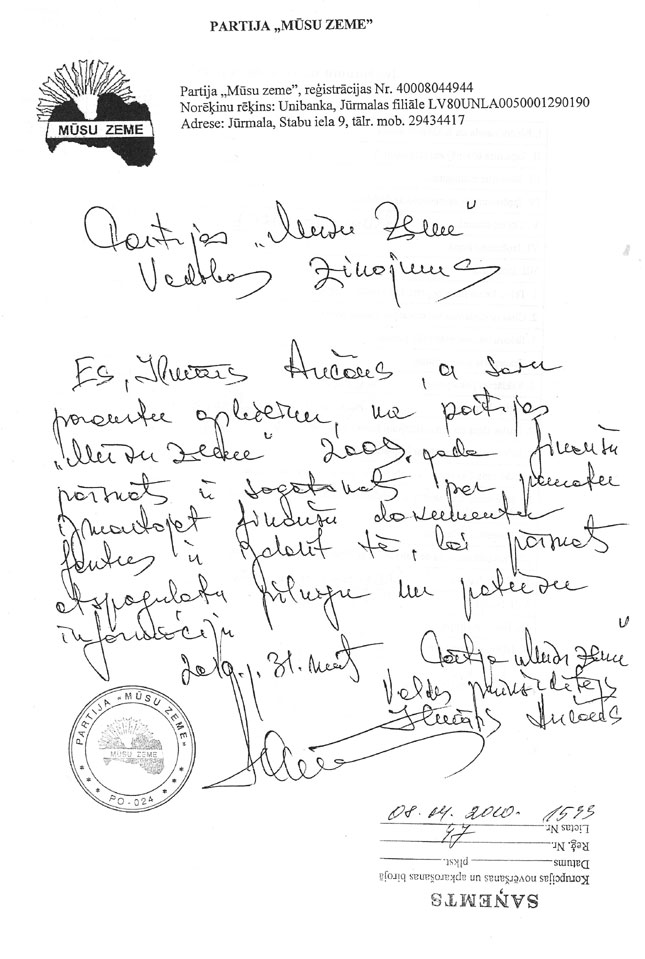 PARTIJA „MŪSU ZEME”
Partija „Mūsu zeme”, reģistrācijas Nr. 40008044944
Norēķinu rēķins: Unibanka, Jūrmalas filiāle LV80UNLA0050001290190
Adrese: Jūrmala, Stabu iela 9, tālr. mob. 29434417
MŪSU ZEME
Partijas „Mūsu Zeme”
Vadības ziņojums
Es, Ilmārs Ančāns, ar savu
parakstu apliecinu, ka partijas
„Mūsu zeme” 2009. gada finanšu
pārskats ir sagatavots par pamatu
izmantojot finanšu dokumentu
ir izdarīt tā, lai pārskats
atspoguļotu pilnīgu un patiesu
informāciju
2010. 31. martā
Partija „Mūsu zeme”
Valdes priekšsēdētājs
Ilmārs Ančāns
PARTIJA «MŪSU ZEME»
MŪSU ZEME
PO-024
SAŅEMTS
Korupcijas novēršanas un apkarošanas birojā
Datums plkst.
Reģ. Nr.
Lietas Nr. 47
08.04.2010.